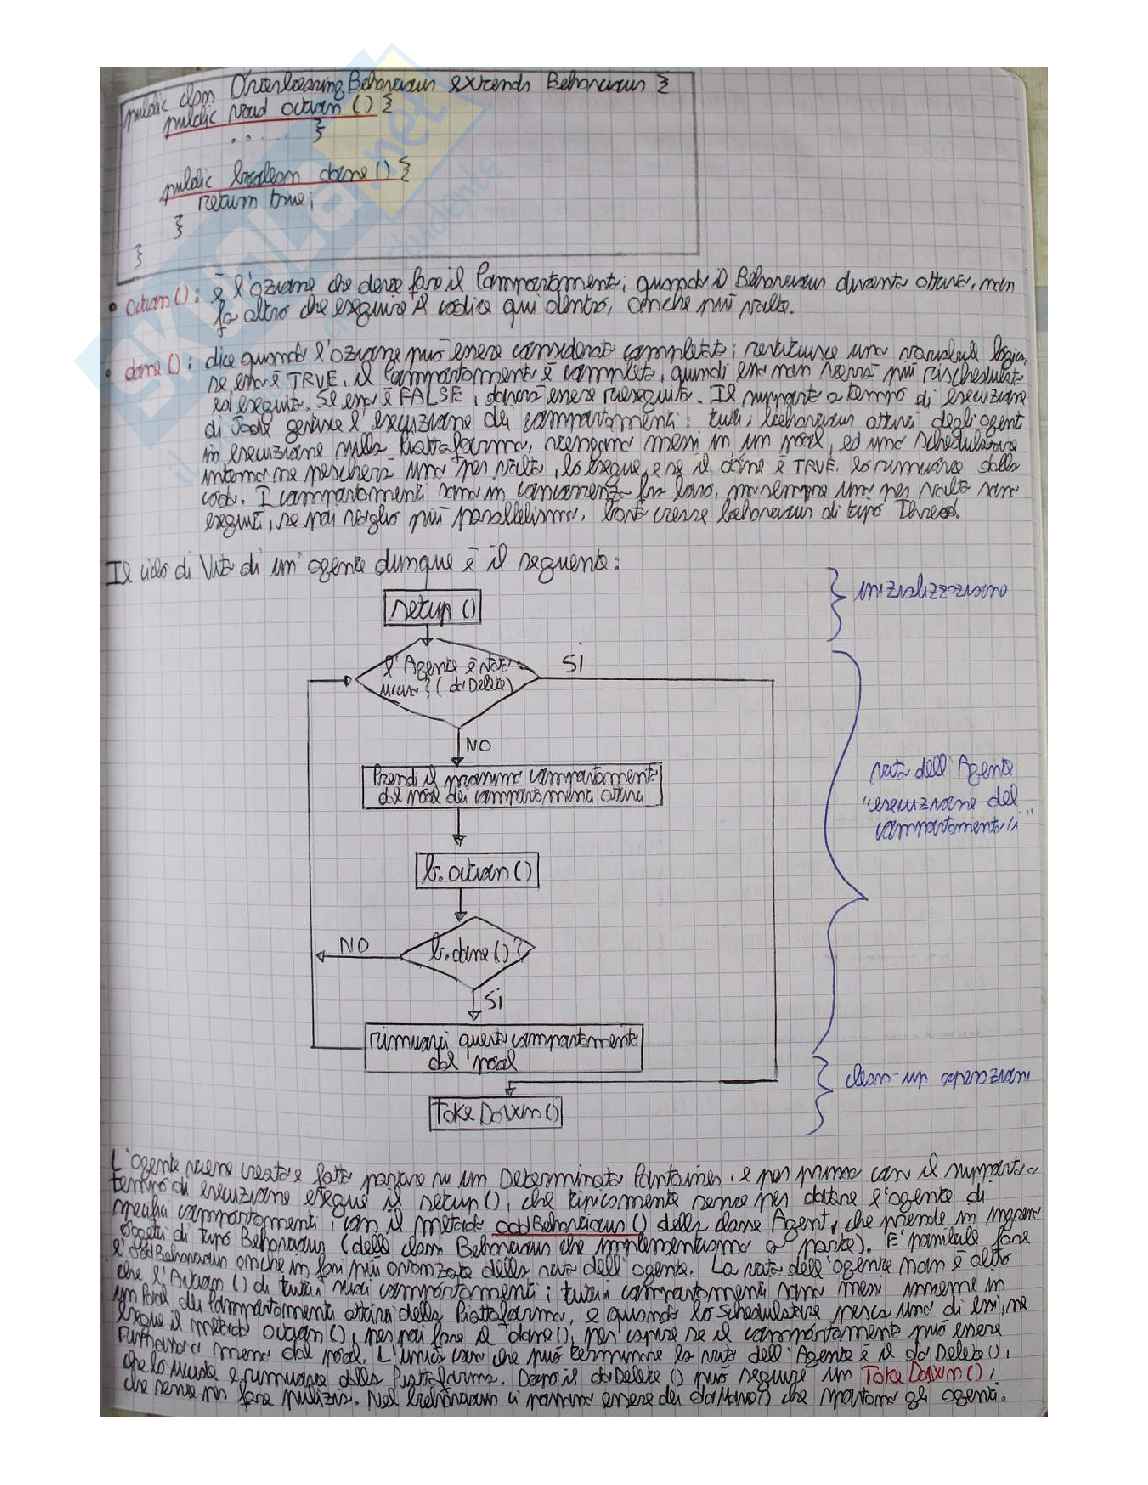 public class OverbearingBehaviour extends Behaviour {
public void action () {
. . . . . }
public boolean done () {
return true;
}
}
• action(): è l'azione che deve fare il Comportamento; quando il Behaviour diventa attivo, non
fa altro che eseguire il codice qui dentro, anche più volte.
• done(): dice quando l'azione può essere considerata completata; restituisce una variabile logica,
se essa è TRUE, il Comportamento è completo, quindi esso non verrà più rischedulato
ed eseguito. Se essa è FALSE, dovrà essere rieseguito. Il supporto a tempo di esecuzione
di Jade gestisce l'esecuzione dei comportamenti: tutti i behaviour attivi degli agenti
in esecuzione sulla Piattaforma, vengono messi in un pool, ed uno schedulatore
interno ne pescherà uno per volta, lo esegue, e se il done è TRUE, lo rimuove dalla
coda. I comportamenti sono in concorrenza fra loro, ma sempre uno per volta sono
eseguiti, se poi voglio più parallelismo, creare behaviour di tipo Thread.
Il ciclo di Vita di un'agente dunque è il seguente:
setup ()
inizializzazione
l'Agente è stato
ucciso? (doDelete)
SI
NO
Prendi il prossimo comportamento
dal pool dei comportamenti attivi
vita dell'Agente
"esecuzione dei
comportamenti"
b.action()
b.done()?
NO
SI
rimuovi questo comportamento
dal pool
clean-up operazioni
TakeDown()
L'agente viene creato e fatto partire su un Determinato Container, e per prima cosa il supporto a
tempo di esecuzione esegue il setup(), che tipicamente serve per dotare l'agente di
specifici comportamenti, con il metodo addBehaviour() della classe Agent, che prende in ingresso
oggetti di tipo Behaviour (della classe Behaviour che implementiamo a parte). E' possibile fare
l'addBehaviour anche in fasi più avanzate della vita dell'agente. La vita dell'agente non è altro
che l'Action() di tutti i suoi comportamenti; tutti i comportamenti sono messi insieme in
un Pool dei Comportamenti attivi della Piattaforma, e quando lo schedulatore pesca uno di essi, ne
esegue il metodo action(), per poi fare il done(), per capire se il comportamento può essere
rimosso o meno dal pool. L'unica cosa che può terminare la vita dell'Agente è il doDelete(),
che lo uccide e rimuove dalla Piattaforma. Dopo il doDelete() può seguire un TakeDown(),
che serve per fare pulizia. Nel behaviour ci possono essere dei doMove() che spostano gli agenti.
SKUOLA.net